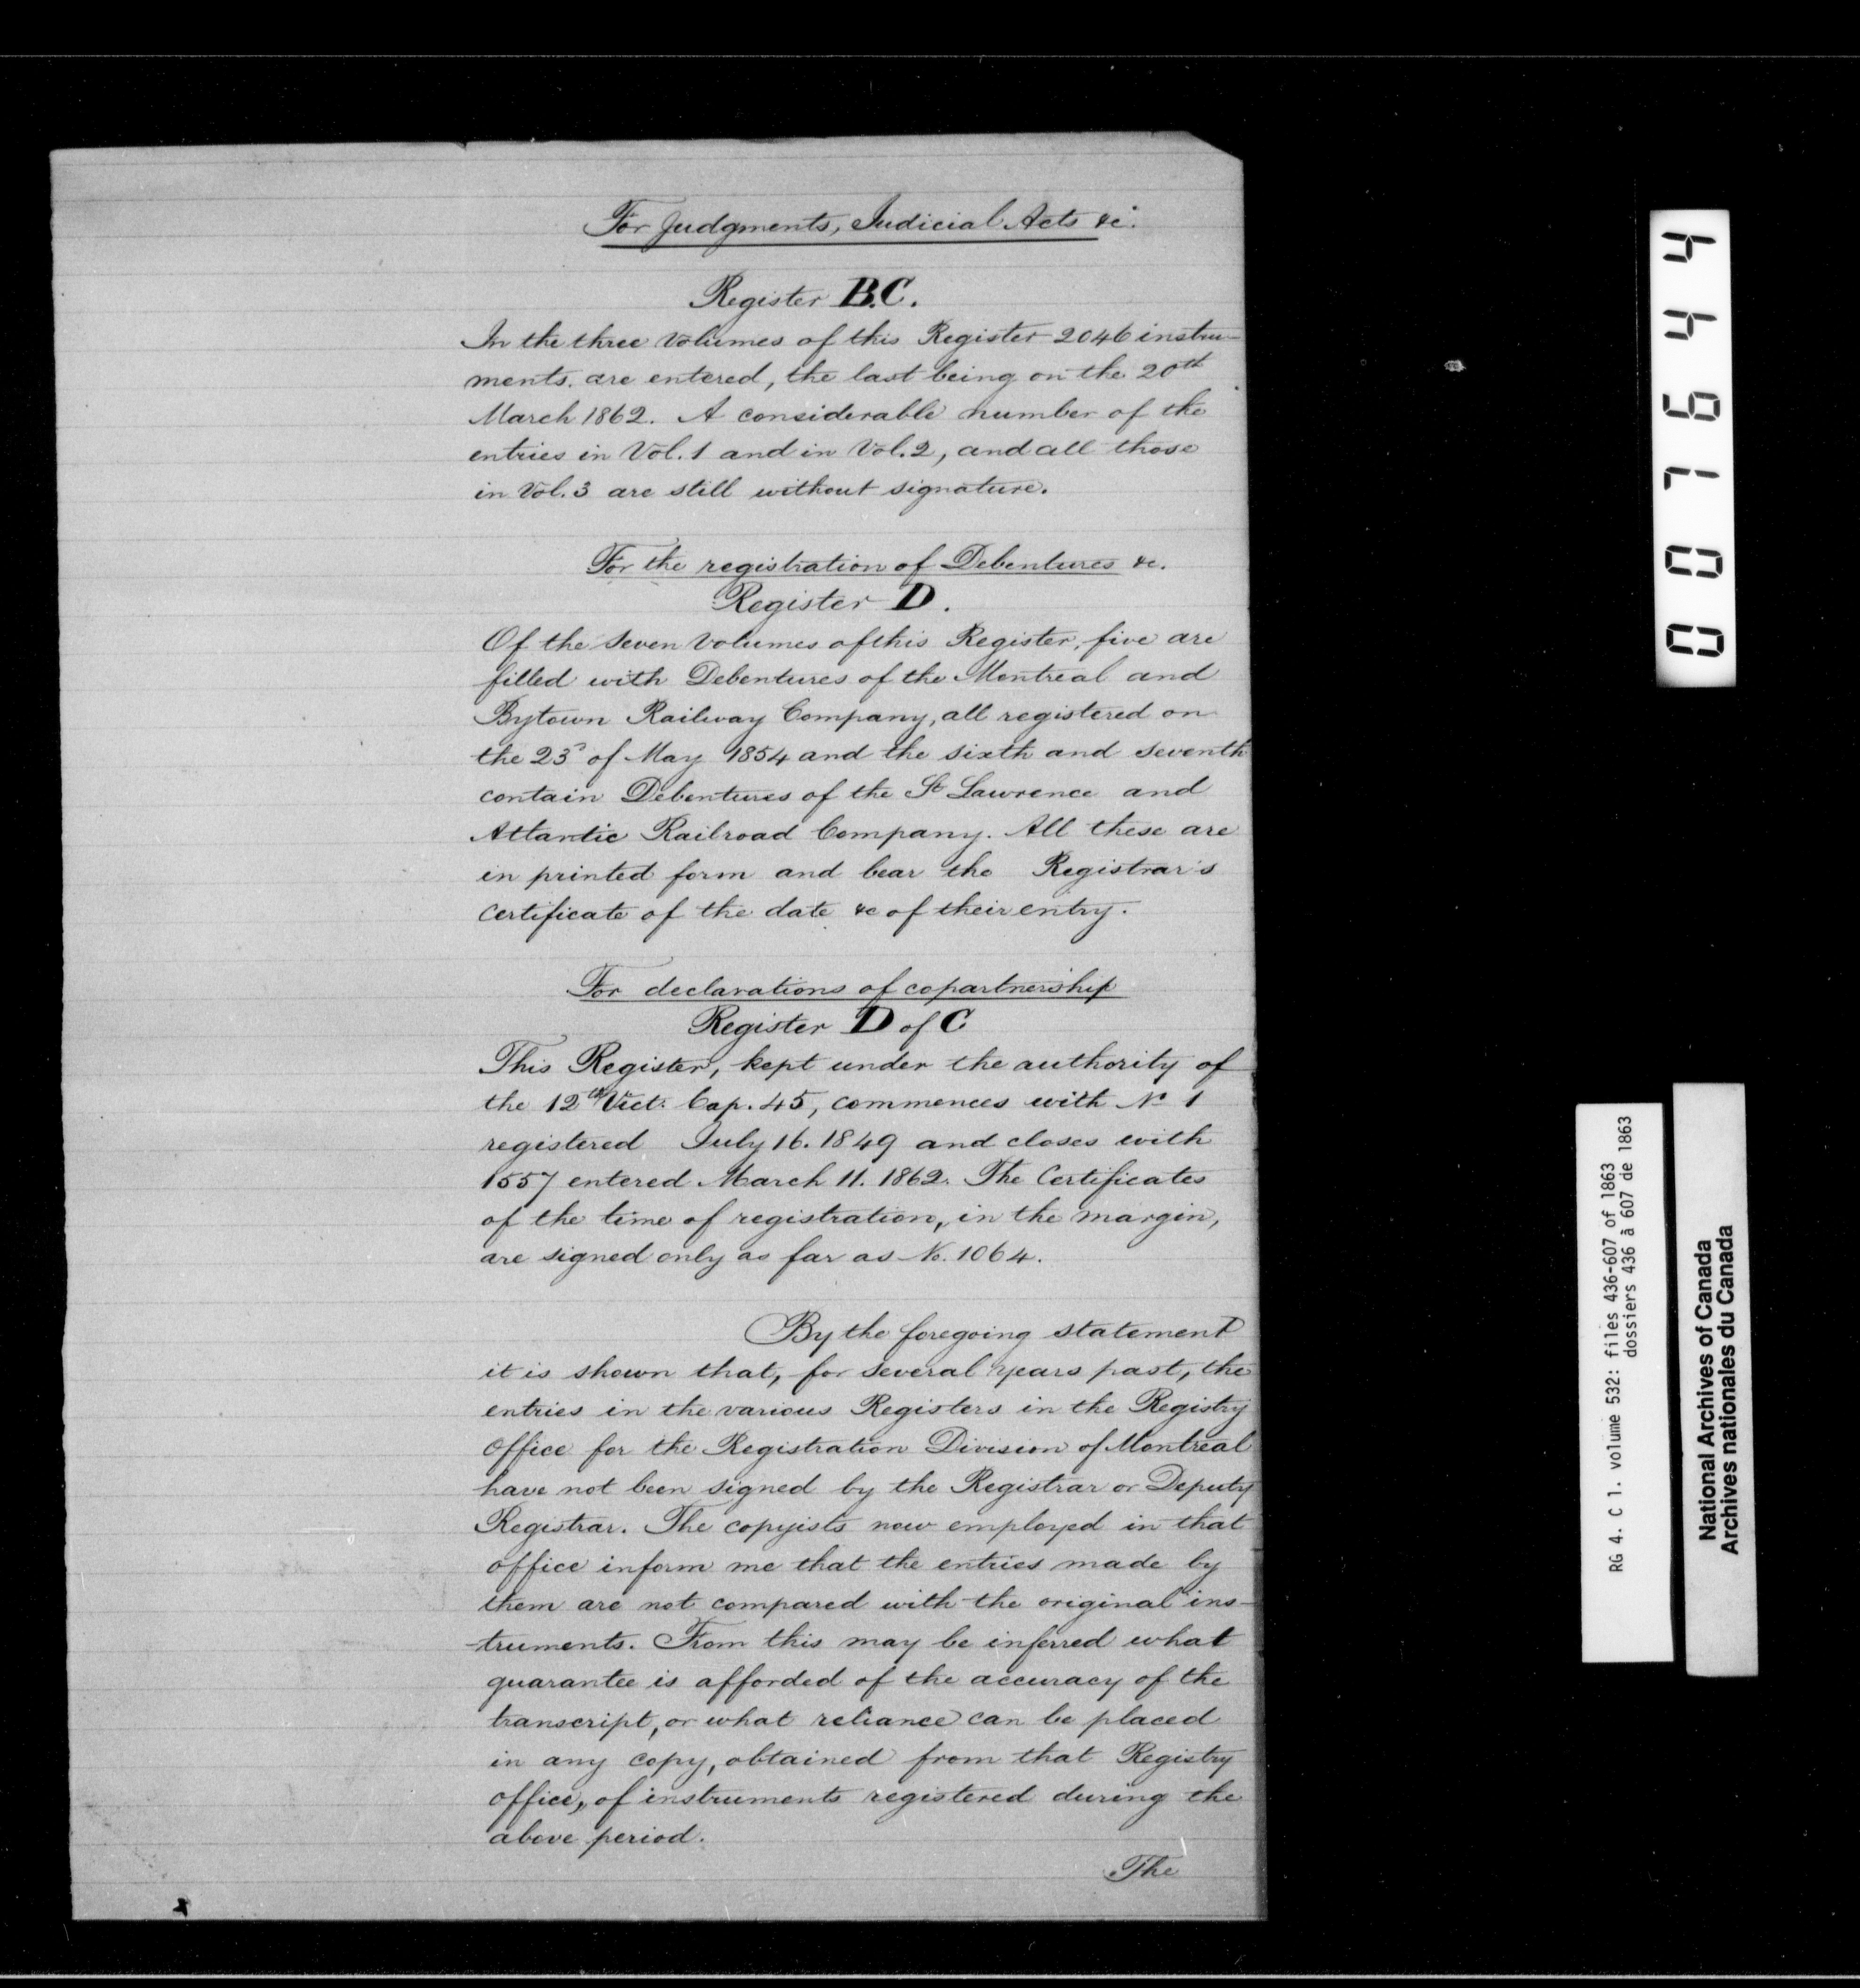 For Judgments, Judicial Acts &c.
Register B.C.
In the three Volumes of this Register 2046 instru-
ments are entered, the last being on the 20th
March 1862. A considerable number of the
entries in Vol. 1 and in Vol. 2, and all those
in Vol. 3 are still without signature.
For the registration of Debentures &c.
Register D.
Of the Seven Volumes of this Register, five are
filled with Debentures of the Montreal and
Bytown Railway Company, all registered on
the 23d of May 1854 and the sixth and seventh
contain Debentures of the St Lawrence and
Atlantic Railroad Company. All these are
in printed form and bear the Registrar's
Certificate of the date &c of their entry.
For declarations of copartnership
Register D of C
This Register, kept under the authority of
the 12th Vict. Cap. 45, commences with No 1
registered July 16. 1849 and closes with
1557 entered March 11. 1862. The Certificates
of the time of registration, in the margin,
are signed only as far as No. 1064.
By the foregoing statement
it is shown that, for several years past, the
entries in the various Registers in the Registry
Office for the Registration Division of Montreal
have not been signed by the Registrar or Deputy
Registrar. The copyists now employed in that
office inform me that the entries made by
them are not compared with the original ins-
-truments. From this may be inferred what
guarantee is afforded of the accuracy of the
transcript, or what reliance can be placed
in any copy, obtained from that Registry
office, of instruments registered during the
above period.
The
007644
RG 4. C 1. volume 532: files 436-607 of 1863
dossiers 436 à 607 de 1863
National Archives of Canada
Archives nationales du Canada